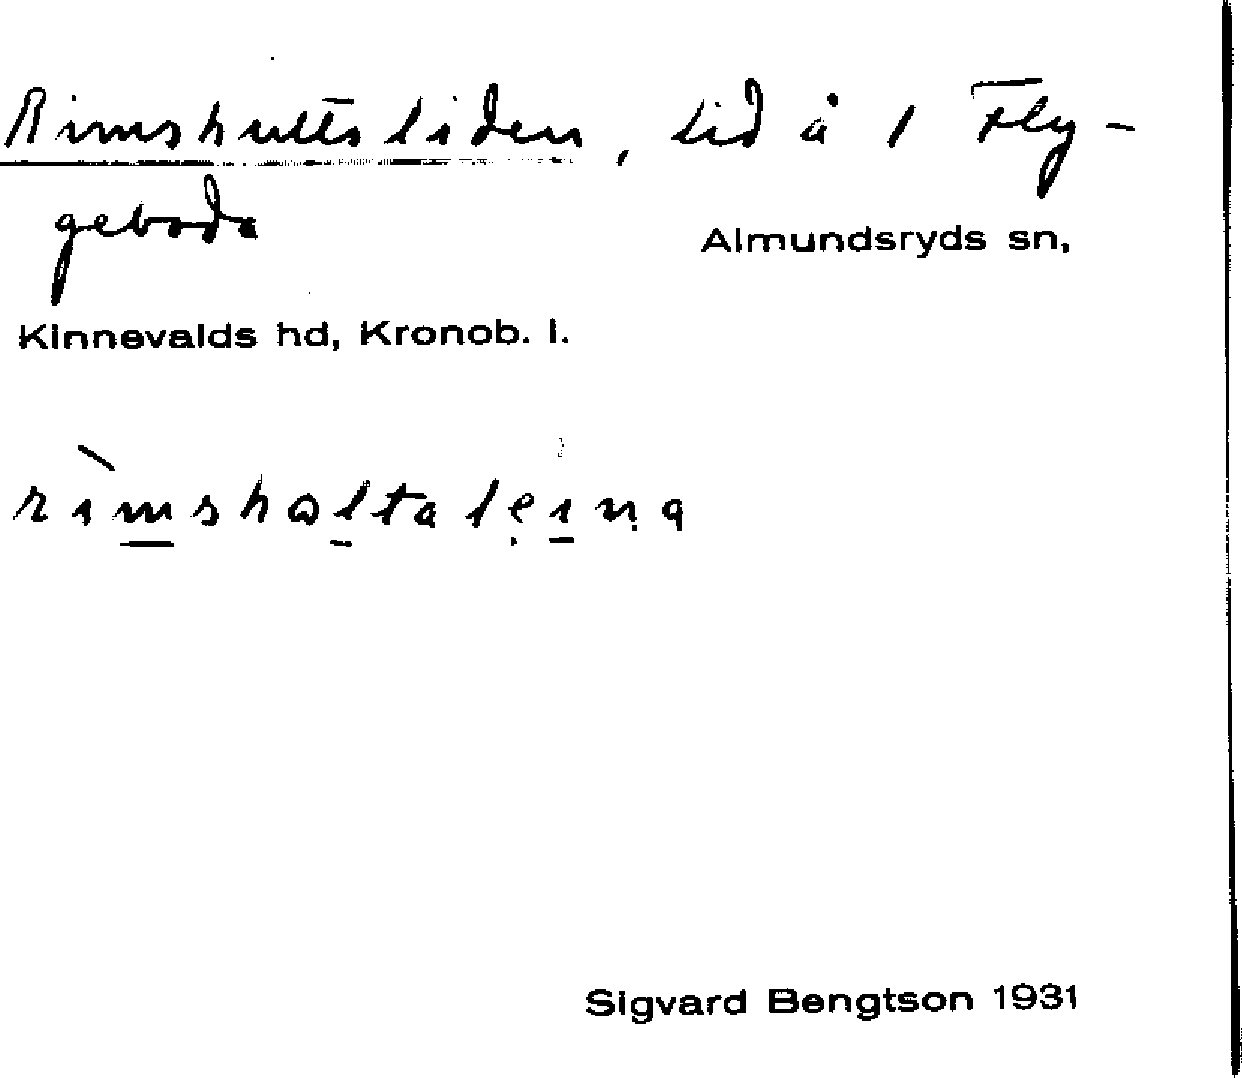 Rimshultsliden, lid å 1 Fly-
geboda
Almundsryds sn,
Kinnevalds hd, Kronob. l.
rimshaltaleina
Sigvard Bengtson 1931